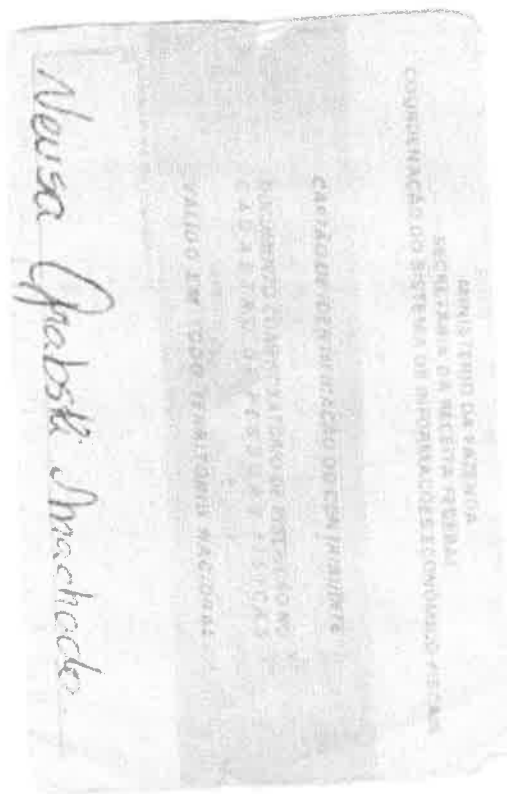 MINISTÉRIO DA FAZENDA
SECRETARIA DA RECEITA FEDERAL
COORDENAÇÃO DO SISTEMA DE INFORMAÇÕES ECONÔMICO-FISCAIS
CARTÃO DE IDENTIFICAÇÃO DO CONTRIBUINTE
DOCUMENTO COMPROBATÓRIO DE INSCRIÇÃO NO
CADASTRO DE PESSOAS FÍSICAS
VÁLIDO EM TODO TERRITÓRIO NACIONAL
Neusa Grabski Machado